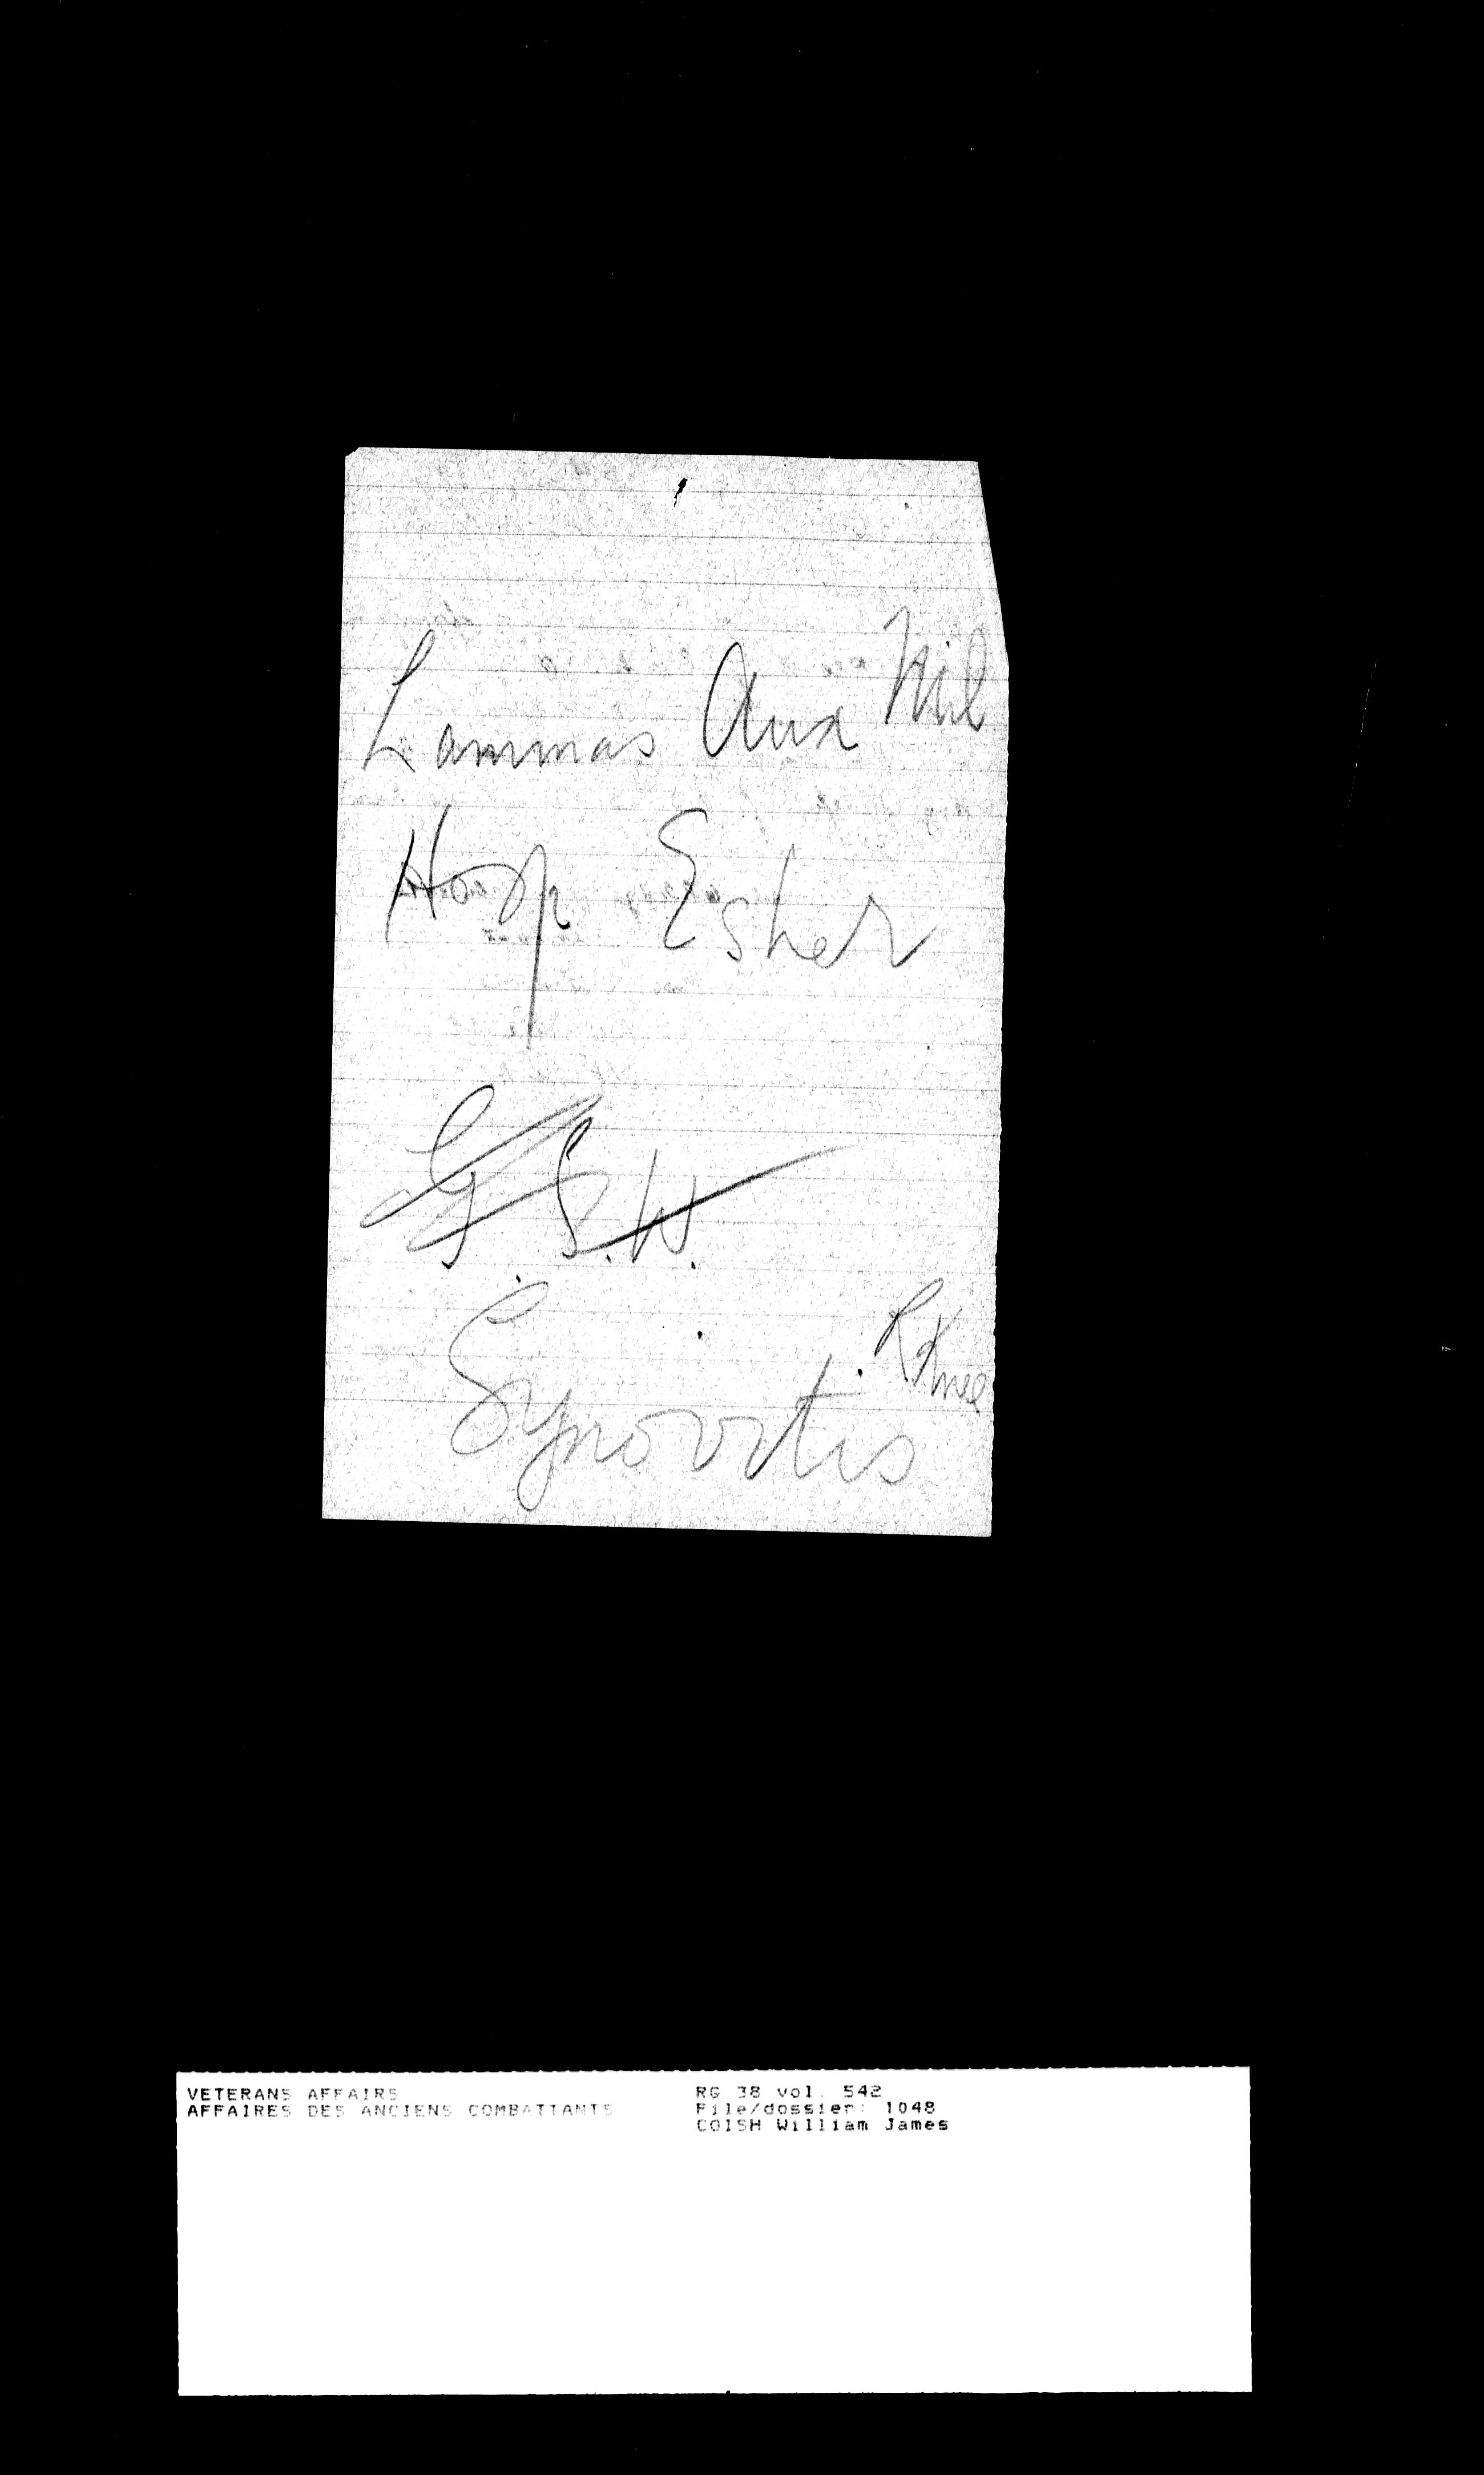 Lammas Aux Mil
Hosp Esher
G. S. W.
R Knee
Synovitis
VETERANS AFFAIRS
AFFAIRES DES ANCIENS COMBATTANTS
RG 38 vol. 542
File/dossier: 1048
COISH William James